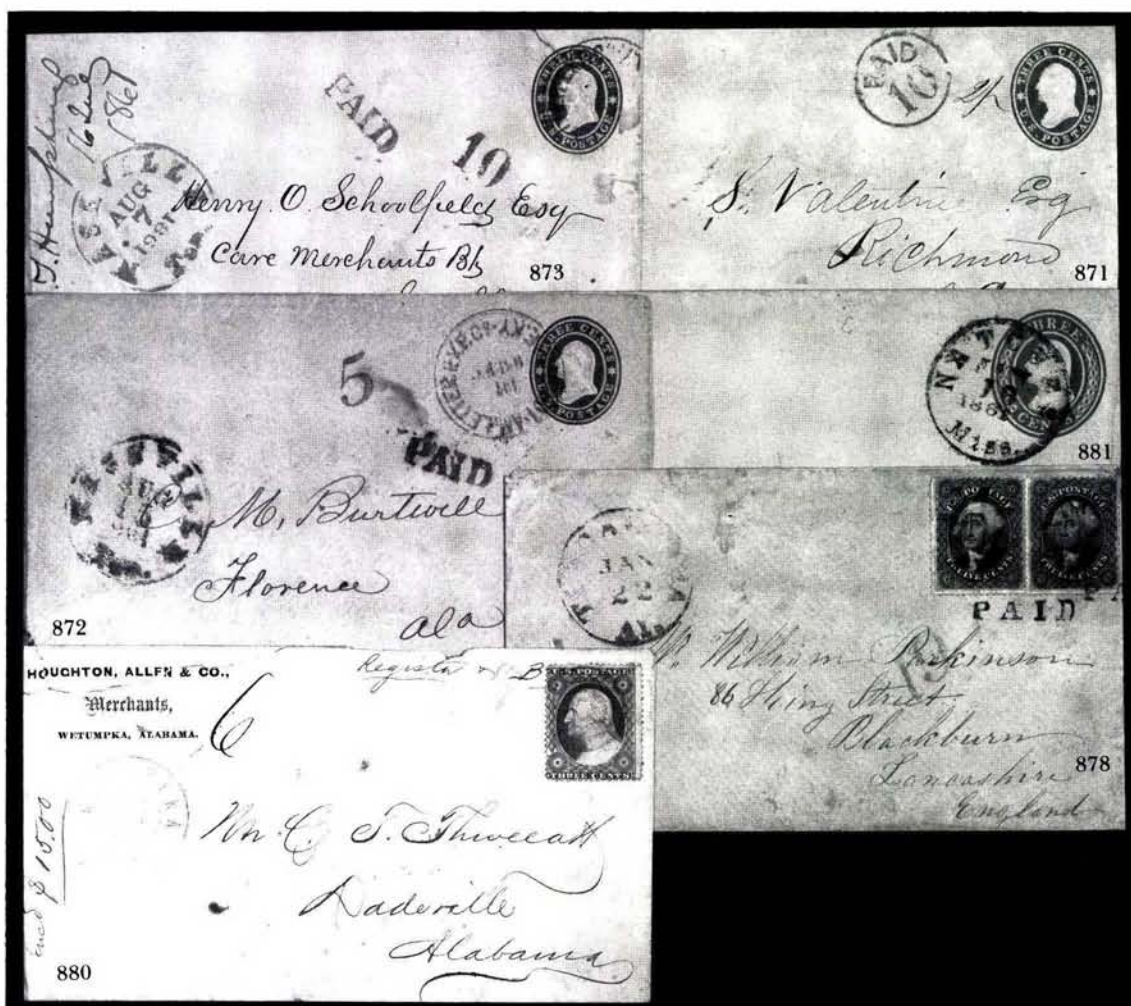 J. Humphrey
16 Aug
1861
NASHVILLE
AUG
7
1861
PAID
10
THREE CENTS
U.S. POSTAGE
Henry. O. Schoolfield Esq
Care Merchants Bk
873
PAID
10
THREE CENTS
U.S. POSTAGE
S. Valentine Esq
Richmond
871
5
PAID
THREE CENTS
U.S. POSTAGE
NASHVILLE
AUG
M. Burtwell
Florence
Ala
872
THREE
CENTS
1861
MISS.
881
U.S. POSTAGE
U.S. POSTAGE
THREE CENTS
PAID
PA
JAN
22
Al.
Mr. William Parkinson
86 King Street
Blackburn
Lancashire
England
878
HOUGHTON, ALLEN & CO.,
Merchants,
WETUMPKA, ALABAMA.
Register
6
U.S. POSTAGE
THREE CENTS
$15.00
Mr C. T.
Dadeville
Alabama
880